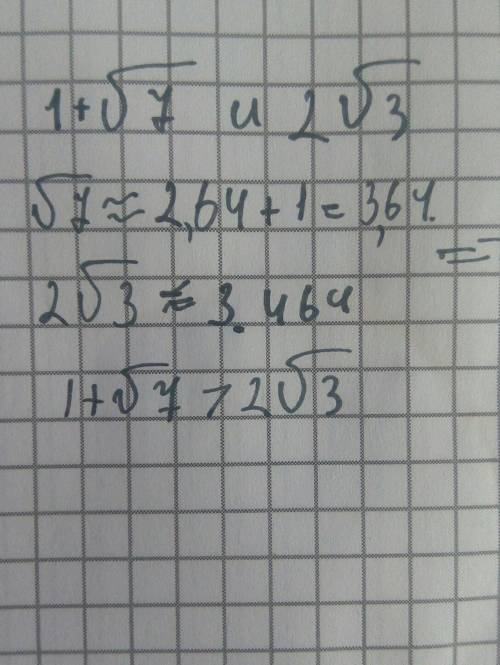 1+√7 и 2√3
√7≈2,64+1=3,64.
=
2√3≈3.464
1+√7>2√3